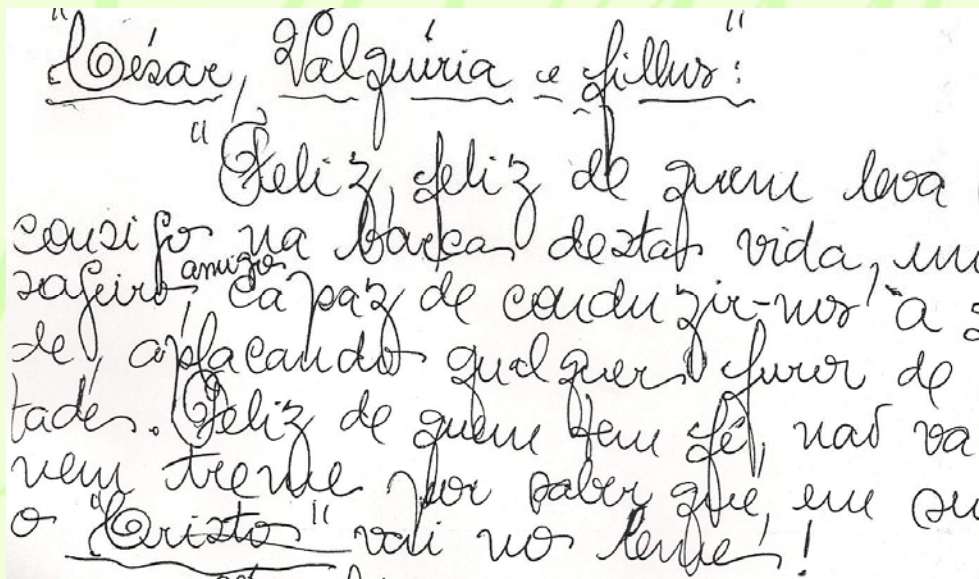 "César, Valquíria e filhos":
"Feliz, feliz de quem leva
consigo na barca desta vida, um
sageiro amigo, capaz de conduzir-nos a
de, aplacando qualquer furor de
tades. Feliz de quem tem fé, não va
nem treme por saber que, em su
o "Cristo" vai no leme!